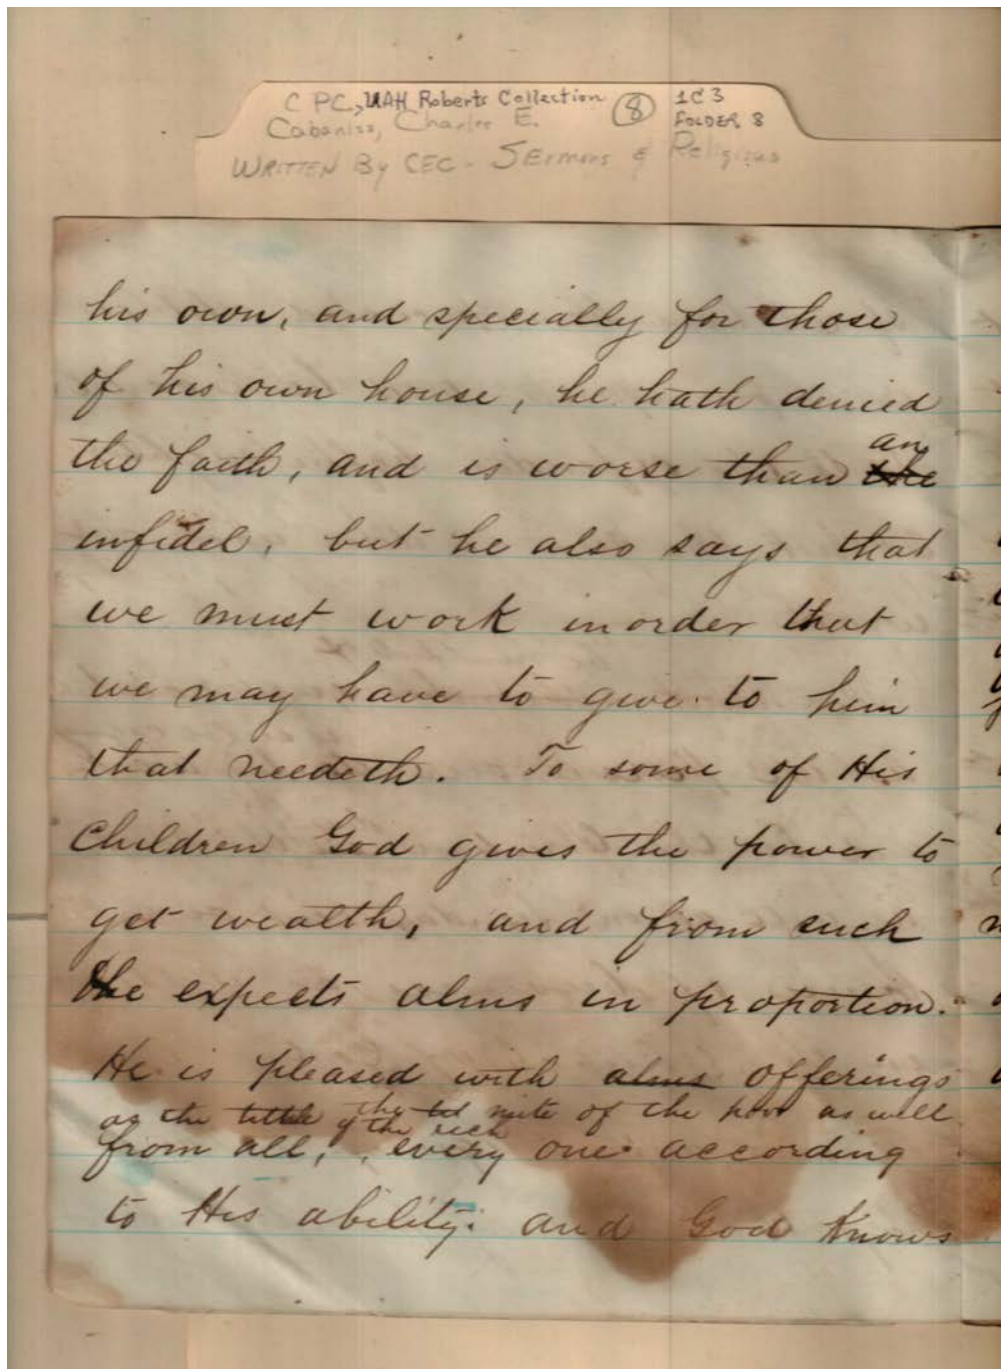 CPC, UAH Roberts Collection (8) 1C3
Cabaniss, Charles E. FOLDER 8
WRITTEN By CEC - SErmons & Religious
his own, and specially for those
of his own house, he hath denied
an
the faith, and is worse than the
infidel, but he also says that
we must work inorder that
we may have to give to him
that needeth. To some of His
Children God gives the power to
get wealth, and from such
He expects alms in proportion.
He is pleased with alms offerings
the mite of the poor as well
as the of the rich
from all, every one according
to His ability. and God knows